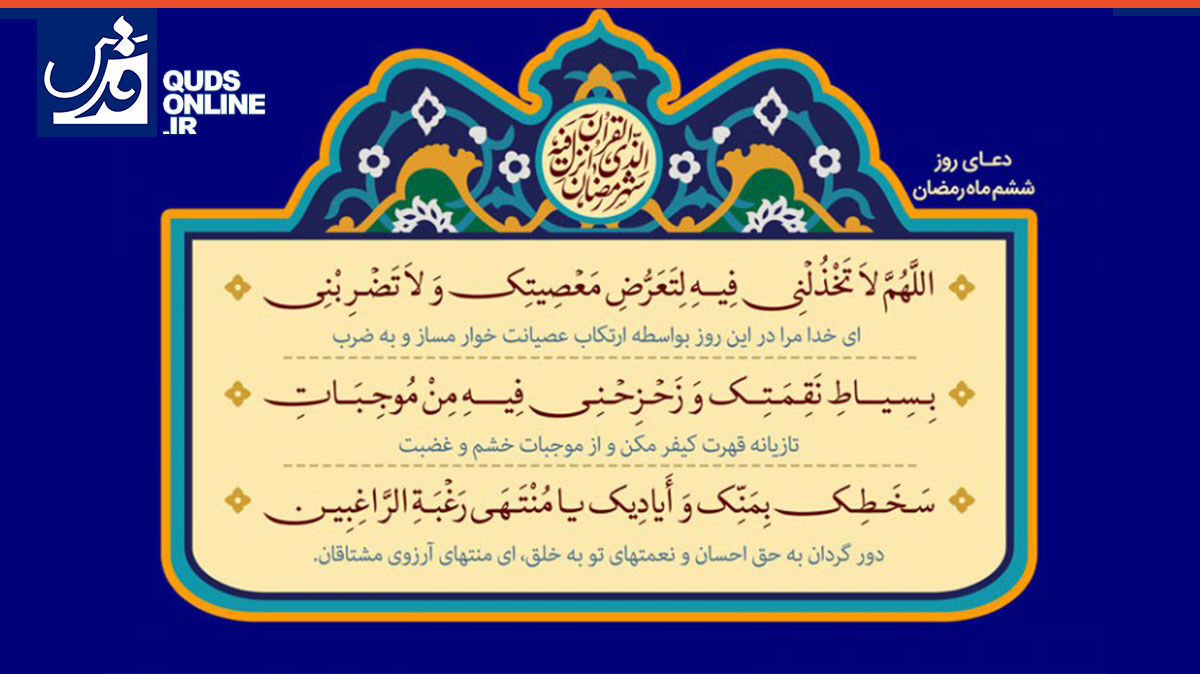 قدس
QUDS
ONLINE
.IR
دعای روز
ششم ماه رمضان
شهر رمضان الذی انزل فیه القرآن
اللَّهُمَّ لاَ تَخْذُلْنِی فِیهِ لِتَعَرُّضِ مَعْصِیتِک وَ لاَ تَضْرِبْنِی
ای خدا مرا در این روز بواسطه ارتکاب عصیانت خوار مساز و به ضرب
بِسِیاطِ نَقِمَتِک وَ زَحْزِحْنِی فِیهِ مِنْ مُوجِبَاتِ
تازیانه قهرت کیفر مکن و از موجبات خشم و غضبت
سَخَطِک بِمَنِّک وَ أَیادِیک یا مُنْتَهَی رَغْبَةِ الرَّاغِبِین
دور گردان به حق احسان و نعمتهای تو به خلق، ای منتهای آرزوی مشتاقان.